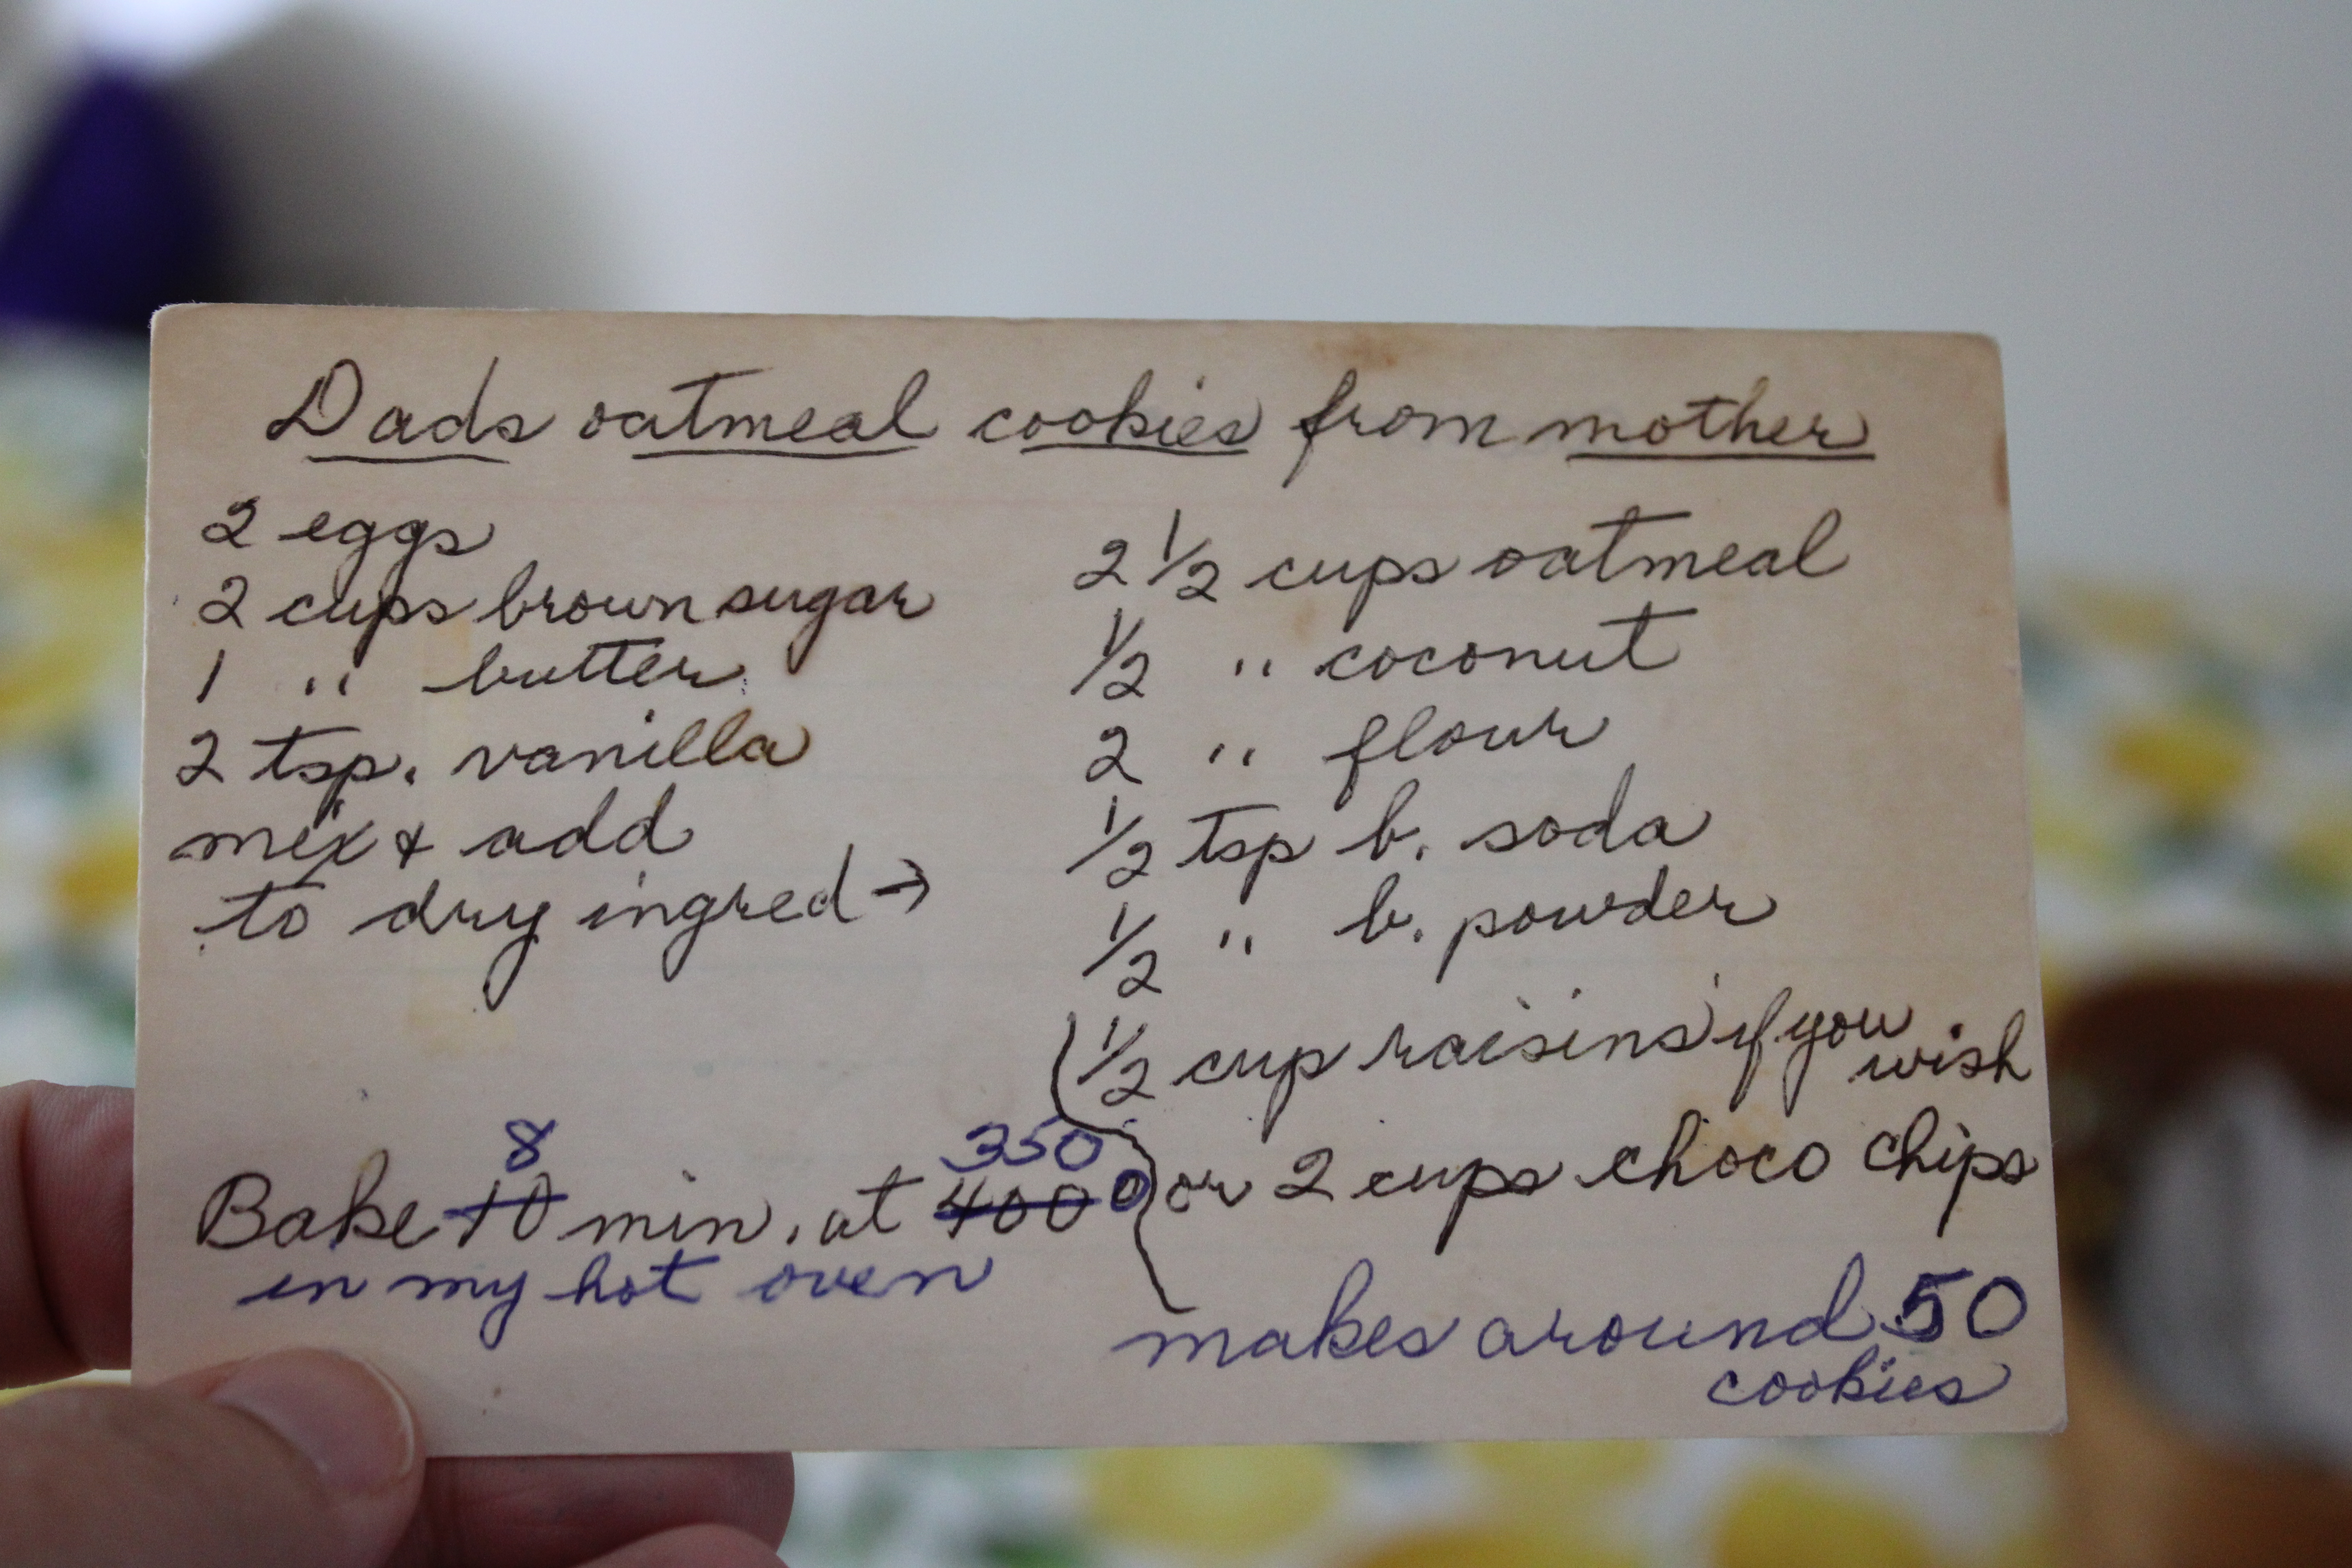 Dads oatmeal cookies from mother
2 eggs
2 cups brown sugar
1 " butter
2 tsp. vanilla
mix & add
to dry ingred →
2 1/2 cups oatmeal
1/2 " coconut
2 " flour
1/2 tsp b. soda
1/2 " b. powder
1/2 cup raisins if you
wish
or 2 cups choco chips
8 350
Bake 10 min. at 400°
in my hot oven
makes around 50
cookies